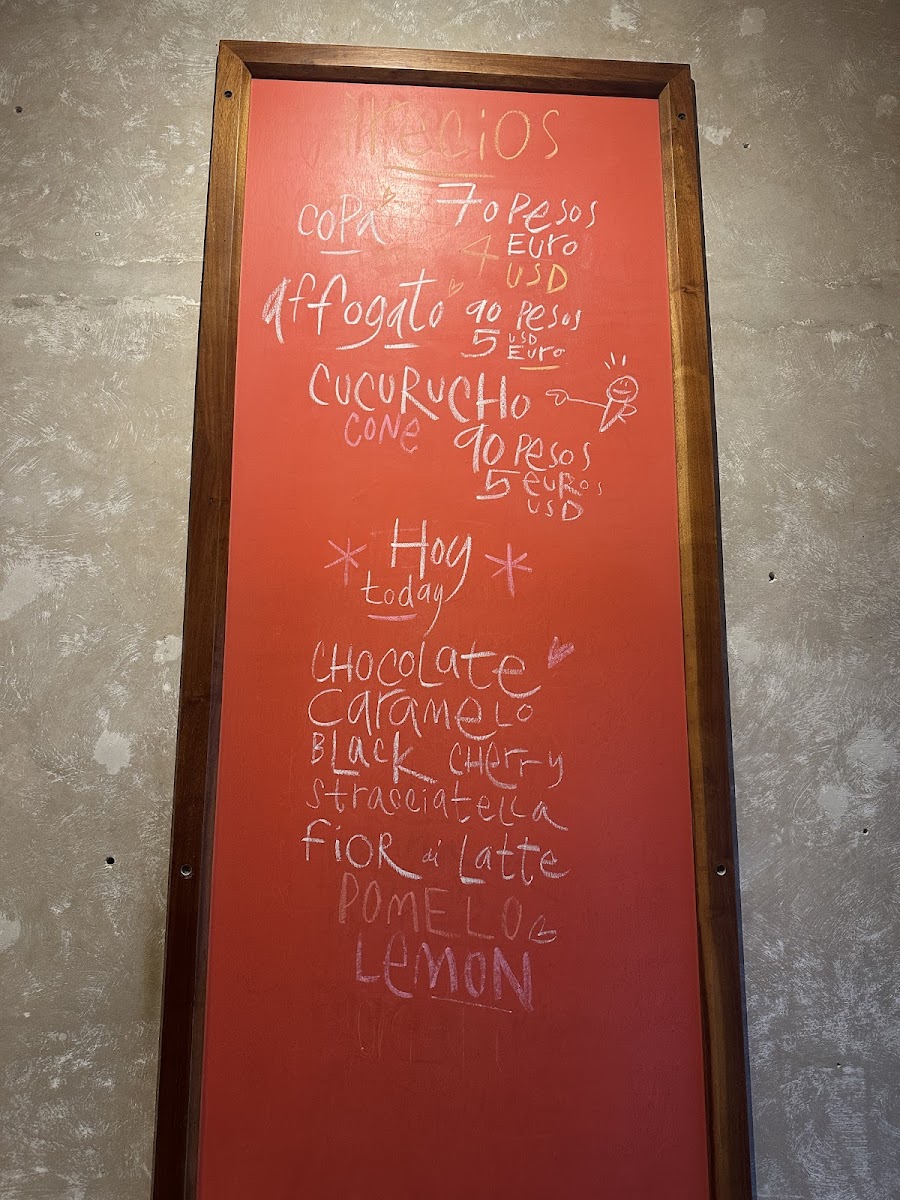 Precios
COPA 70 Pesos
4 Euro
USD
affogato 90 Pesos
5 USD
Euro
CUCURUCHO
CONE
90 Pesos
5 euros
USD
* Hoy *
today
CHOCOLate
CarameLO
BLack CHerry
Stracciatella
FiOR di Latte
POMELO
LeMON